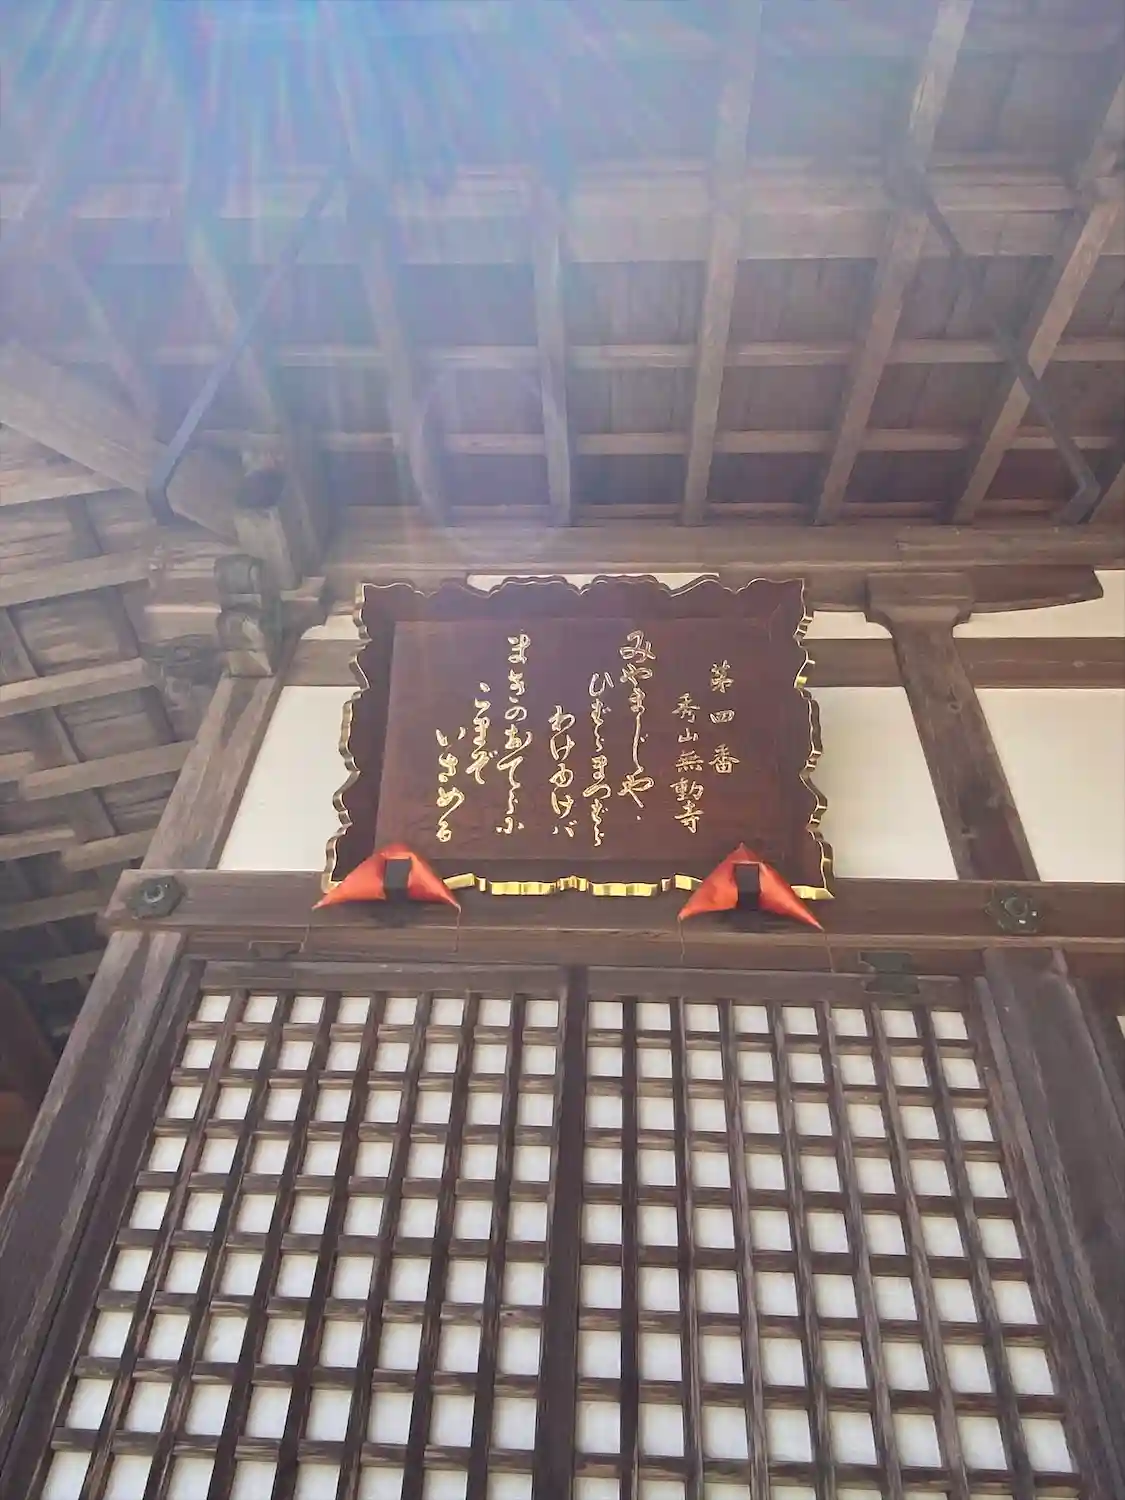 第四番
秀山無動寺
みやまじや、
ひばらまつばら
わけゆけバ
まきのおてらに
こまぞ
いさめる